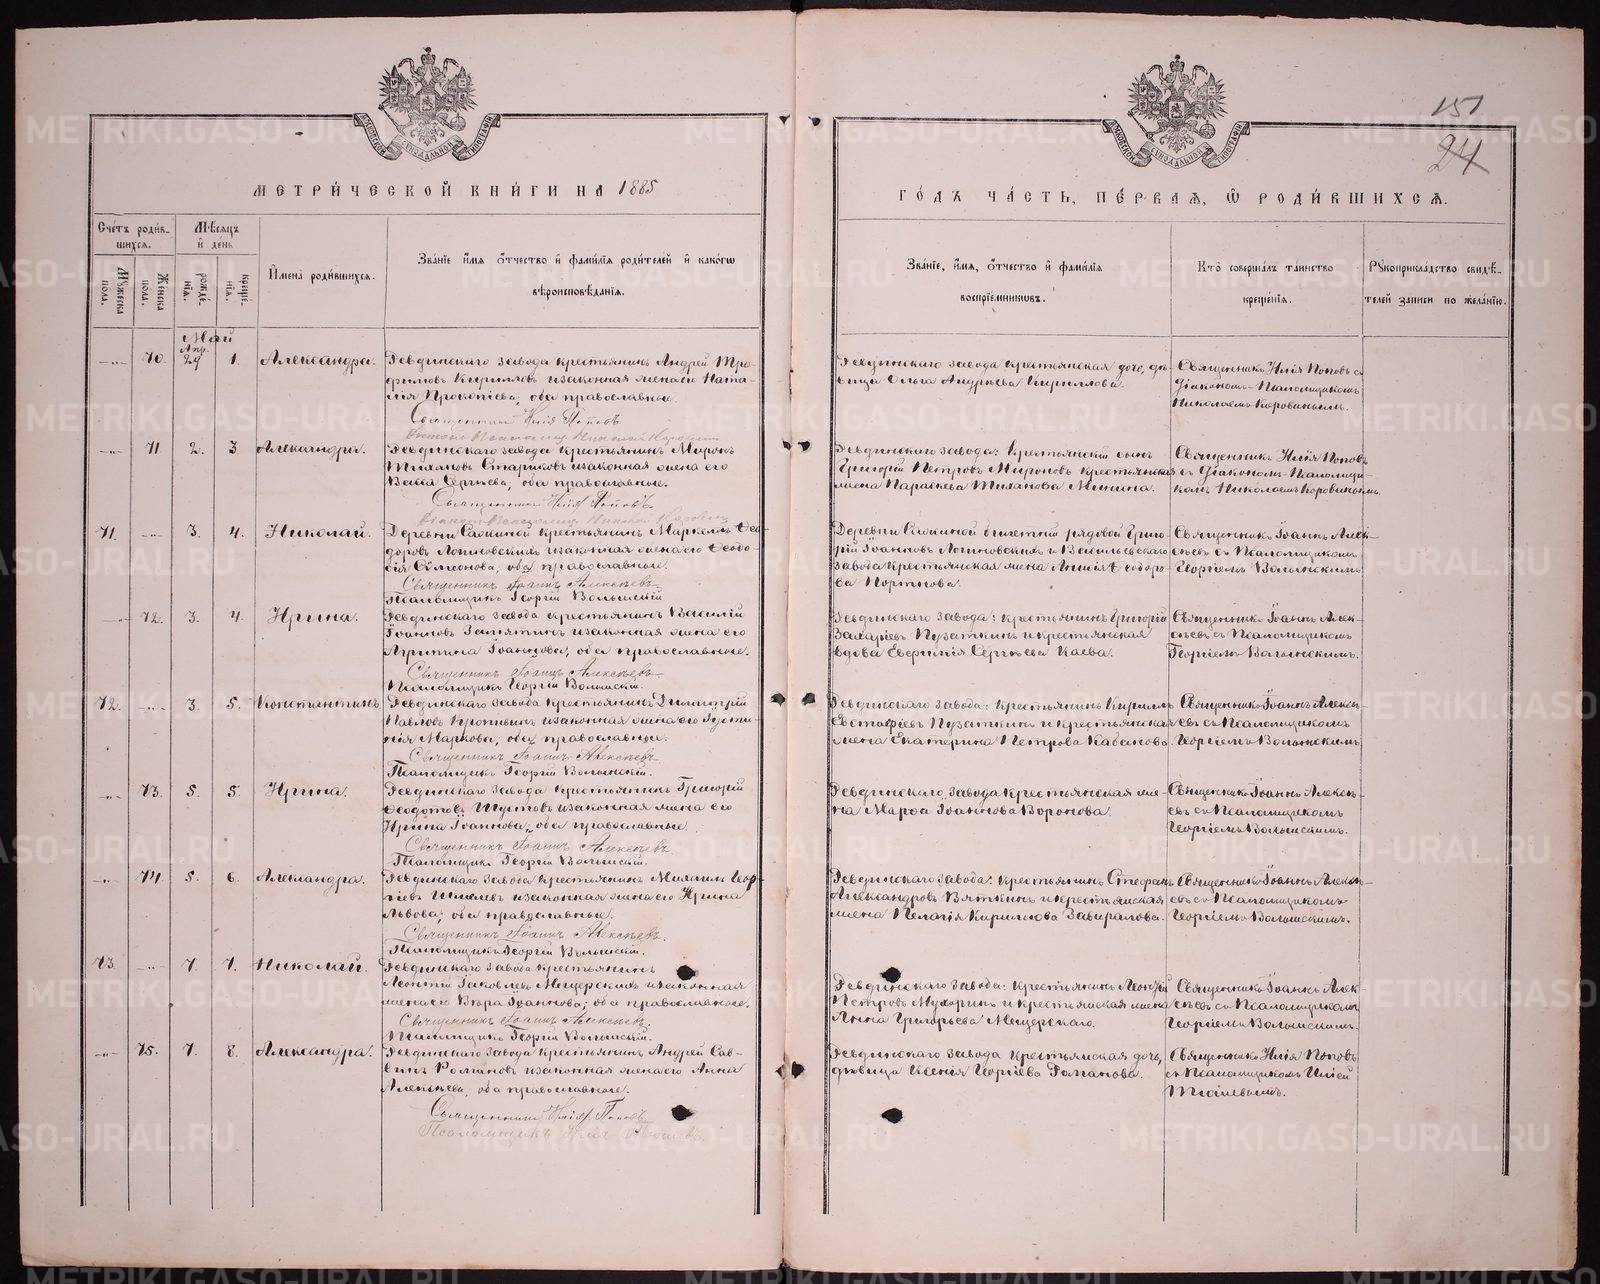 151
24
МЕТРИЧЕСКОЙ КНИГИ НА 1885
ГОДЪ ЧАСТЬ, ПЕРВАЯ, Ѿ РОДИВШИХСЯ.
Счетъ родив-
шихся.
Мужеска пола.
Женска пола.
Мѣсяцъ и день
рожденія.
крещенія.
Имена родившихся.
Званіе имя отчество и фамилія родителей и какогѡ
вѣроисповѣданія.
Званіе, имя, отчество и фамилія
воспріемникѡвъ.
Кто совершалъ таинство
крещенія.
Рукоприкладство свидѣ-
телей записи по желанію.
Май
70. Апр. 29 1. Александра.
Ревдинскаго завода крестьянинъ Андрей Тро-
фимовъ Кирилловъ и законная жена его Ната-
лія Прокопіева; оба православные.
Священникъ Илія Поповъ
Ревдинскаго завода крестьянская дочь, дѣ-
вица Ольга Андреева Кириллова.
Священникъ Илія Поповъ с
Діакономъ-Псаломщикомъ
Николаемъ Коровинымъ.
71 2. 3 Александра.
Ревдинскаго завода крестьянинъ Миронъ
Стариковъ и законная жена его
Васса Сергѣева; оба православные.
Священникъ Илія Поповъ
Ревдинскаго завода: Крестьянскій сынъ
Григорій Петровъ Мироновъ крестьянская
жена Параскева Минина.
Священникъ Илія Поповъ
съ Діакономъ-Псаломщи-
комъ Николаемъ Коровинымъ.
71. 3. 4. Николай.
Деревни крестьянинъ Маркелъ Ѳео-
доровъ Логиновскихъ и законная жена его Ѳеодо-
сія Сѵмеонова; оба православные.
Священникъ Іоаннъ Алексѣевъ
Псаломщикъ Георгій Волынскій
Деревни билетный рядовой Григо-
рій Іоанновъ Логиновскихъ и Васильевскаго
завода крестьянская жена Ѳеодоро-
ва Портнова.
Священникъ Іоаннъ Алек-
сѣевъ съ Псаломщикомъ
Георгіемъ Волынскимъ
72. 3. 4 Ирина.
Ревдинскаго завода крестьянинъ Василій
Іоанновъ Замятинъ и законная жена его
Іоаннова; оба православные.
Священникъ Іоаннъ Алексѣевъ
Псаломщикъ Георгій Волынскій.
Ревдинскаго завода: крестьянинъ Григорій
Захаріевъ Пузаткинъ и крестьянская
вдова Сергѣева Каева.
Священникъ Іоаннъ Алек-
сѣевъ съ Псаломщикомъ
Георгіемъ Волынскимъ.
72. 3. 5. Константинъ.
Ревдинскаго завода крестьянинъ Димитрій
Павловъ и законная жена его Іусти-
нія Маркова; оба православные.
Священникъ Іоаннъ Алексѣевъ
Псаломщикъ Георгій Волынскій.
Ревдинскаго завода: крестьянинъ Кириллъ
Евстафіевъ Пузаткинъ и крестьянская
жена Екатерина Петрова Кабанова.
Священникъ Іоаннъ Алексѣ-
евъ съ Псаломщикомъ
Георгіемъ Волынскимъ
73. 5. 5. Ирина.
Ревдинскаго завода крестьянинъ Григорій
Ѳеодотовъ Шустовъ и законная жена его
Ирина Іоаннова; оба православные.
Священникъ Іоаннъ Алексѣевъ
Псаломщикъ Георгій Волынскій.
Ревдинскаго завода крестьянская же-
на Марѳа Іоаннова Воронова.
Священникъ Іоаннъ Алексѣ-
евъ съ Псаломщикомъ
Георгіемъ Волынскимъ.
74. 5. 6. Александра.
Ревдинскаго завода крестьянинъ Михаилъ Геор-
гіевъ и законная жена его Ирина
Львова; оба православные.
Священникъ Іоаннъ Алексѣевъ.
Псаломщикъ Георгій Волынскій.
Ревдинскаго завода: крестьянинъ Стефанъ
Александровъ Вяткинъ и крестьянская
жена Пелагія Кириллова Забиралова.
Священникъ Іоаннъ Алексѣ-
евъ съ Псаломщикомъ
Георгіемъ Волынскимъ.
73. 7. 7. Николай.
Ревдинскаго завода крестьянинъ
Леонтій Іаковлевъ Мещерскихъ и законная
жена его Вѣра Іоаннова; оба православные.
Священникъ Іоаннъ Алексѣевъ.
Псаломщикъ Георгій Волынскій.
Ревдинскаго завода: крестьянинъ Леонтій
Петровъ Мухоринъ и крестьянская жена
Анна Григорьева Мещерскаго.
Священникъ Іоаннъ Алек-
сѣевъ съ Псаломщикомъ
Георгіемъ Волынскимъ.
75. 7. 8. Александра.
Ревдинскаго завода крестьянинъ Андрей Сав-
винъ Романовъ и законная жена его Анна
Алексѣева, оба православные.
Священникъ Илія Поповъ
Псаломщикъ Илія
Ревдинскаго завода крестьянская дочь,
дѣвица Ксенія Георгіева Романова.
Священникъ Илія Поповъ
съ Псаломщикомъ Иліей